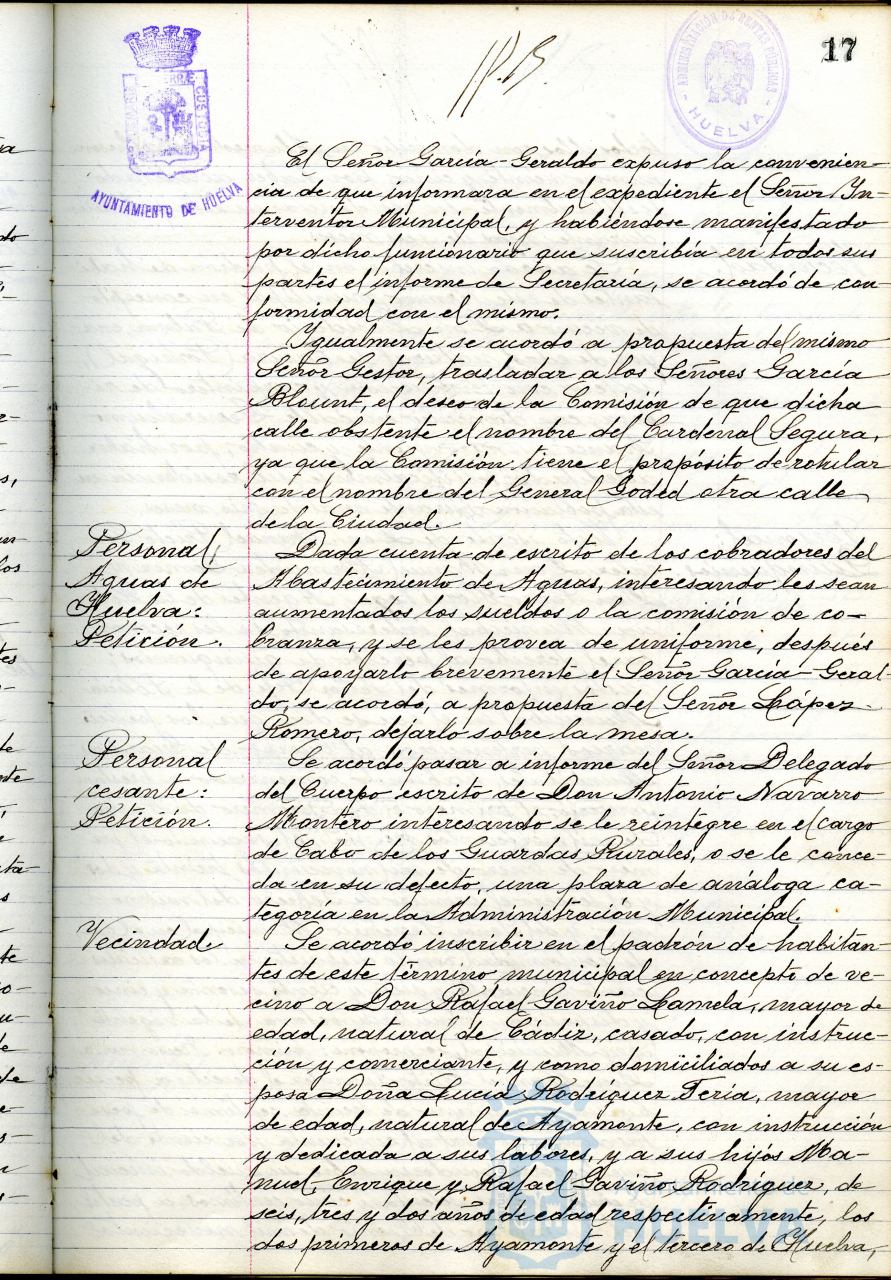 17
AYUNTAMIENTO DE HUELVA
ADMINISTRACIÓN DE RENTAS PÚBLICAS
HUELVA
El Señor García-Geraldo expuso la convenien-
cia de que informara en el expediente el Señor In-
terventor Municipal, y habiéndose manifestado
por dicho funcionario que suscribía en todos sus
partes el informe de Secretaría, se acordó de con-
formidad con el mismo.
Igualmente se acordó a propuesta del mismo
Señor Gestor, trasladar a los Señores García
Blount, el deseo de la Comisión de que dicha
calle obstente el nombre del Cardenal Segura,
ya que la Comisión tiene el propósito de rotular
con el nombre del General Goded otra calle
de la Ciudad.
Personal,
Aguas de
Huelva:
Petición.
Dada cuenta de escrito de los cobradores del
Abastecimiento de Aguas, interesando les sean
aumentados los sueldos o la comisión de co-
branza, y se les provea de uniforme, después
de apoyarlo brevemente el Señor García-Geral-
do, se acordó, a propuesta del Señor López
Romero, dejarlo sobre la mesa.
Personal
cesante:
Petición.
Se acordó pasar a informe del Señor Delegado
del Cuerpo escrito de Don Antonio Navarro
Montero interesando se le reintegre en el cargo
de Cabo de los Guardas Rurales, o se le conce-
da en su defecto, una plaza de análoga ca-
tegoría en la Administración Municipal.
Vecindad.
Se acordó inscribir en el padrón de habitan-
tes de este término municipal en concepto de ve-
cino a Don Rafael Gaviño Lamela, mayor de
edad, natural de Cádiz, casado, con instruc-
ción y comerciante, y como domiciliados a su es-
posa Doña Lucía Rodríguez Feria, mayor
de edad, natural de Ayamonte, con instrucción
y dedicada a sus labores, y a sus hijos Ma-
nuel, Enrique y Rafael Gaviño Rodríguez, de
seis, tres y dos años de edad respectivamente, los
dos primeros de Ayamonte y el tercero de Huelva,
Ayuntamiento de
HUELVA